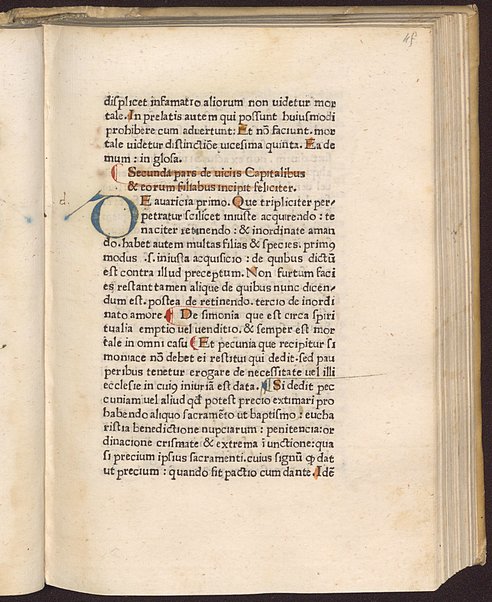 45
displicet infamatio aliorum non uidetur mor
tale. In prelatis autem qui possunt huiusmodi
prohibere cum aduertunt: Et nō faciunt. mor
tale uidetur distinctiōe uicesima quinta. Ea de
mum: in glosa.
Secunda pars de uiciis Capitalibus
& eorum filiabus incipit feliciter.
d.
DE auaricia primo. Que tripliciter per-
petratur scilicet iniuste acquirendo: te
naciter retinendo: & inordinate aman
do. habet autem multas filias & species. primꝰ
modus .s. iniusta acquisicio: de quibus dictū
est contra illud preceptum. Non furtum faci
es restant tamen alique de quibus nunc dicen-
dum est. postea de retinendo. tercio de inordi
nato amore. De simonia que est circa spiri
tualia emptio uel uenditio. & semper est mor
tale in omni casu Et pecunia que recipitur si
moniace nō debet ei restitui qui dedit. sed pau
peribus tenetur erogare de necessitate uel illi
ecclesie in cuiꝰ iniuriā est data. Si dedit pec
cuniam uel aliud qd̄ potest precio extimari pro
habendo aliquo sacramēto ut baptismo: eucha
ristia benedictione nupciarum: penitencia: or
dinacione crismate & extrema īunctione: qua
si precium ipsius sacramenti. cuius signū ꝙ dat
ut precium: quando fit pactio cum dante. Idē